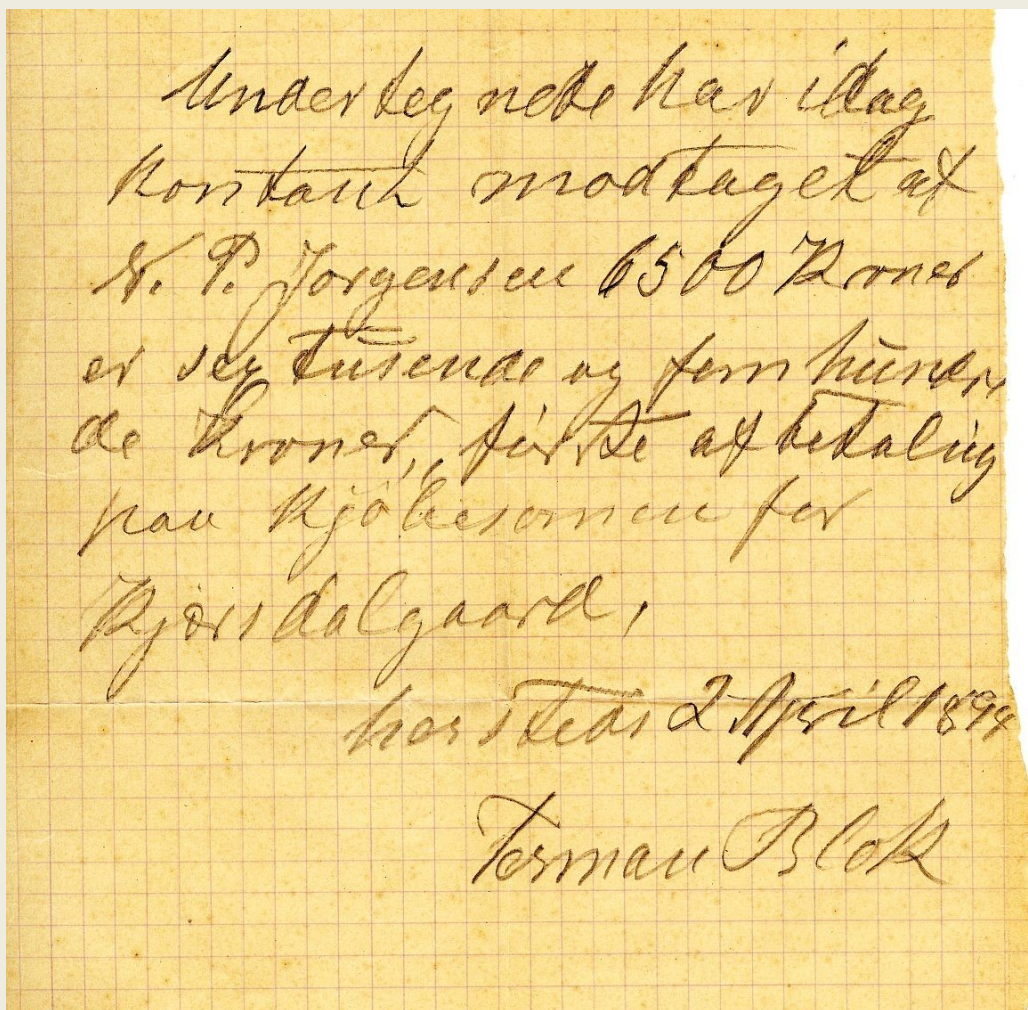 Undertegnede har idag
kontant modtaget af
N. P. Jorgensen 6500 Kroner
er sex tusende og fem hundre
de Kroner, første afbetaling
paa Kjöbesomen for
Kjærsdalgaard,
2 April 189
Blok